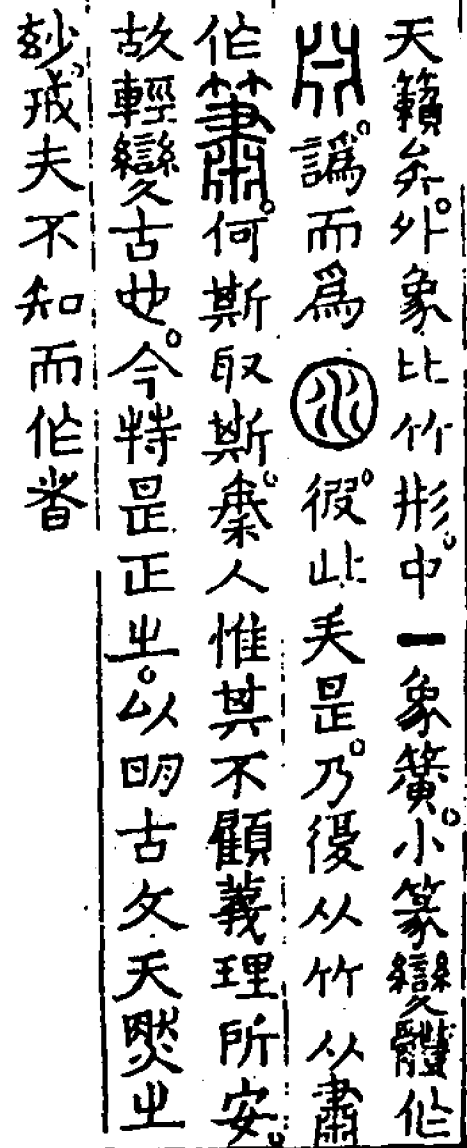 天籟矣。外象比竹形。中一象簧。小篆變體作
譌而爲。彼此失是。乃復从竹从肅
作簫。何斯取斯。秦人惟其不顧義理所安。
故輕變古也。今特是正之。以明古文天然之
玅。戒夫不知而作者